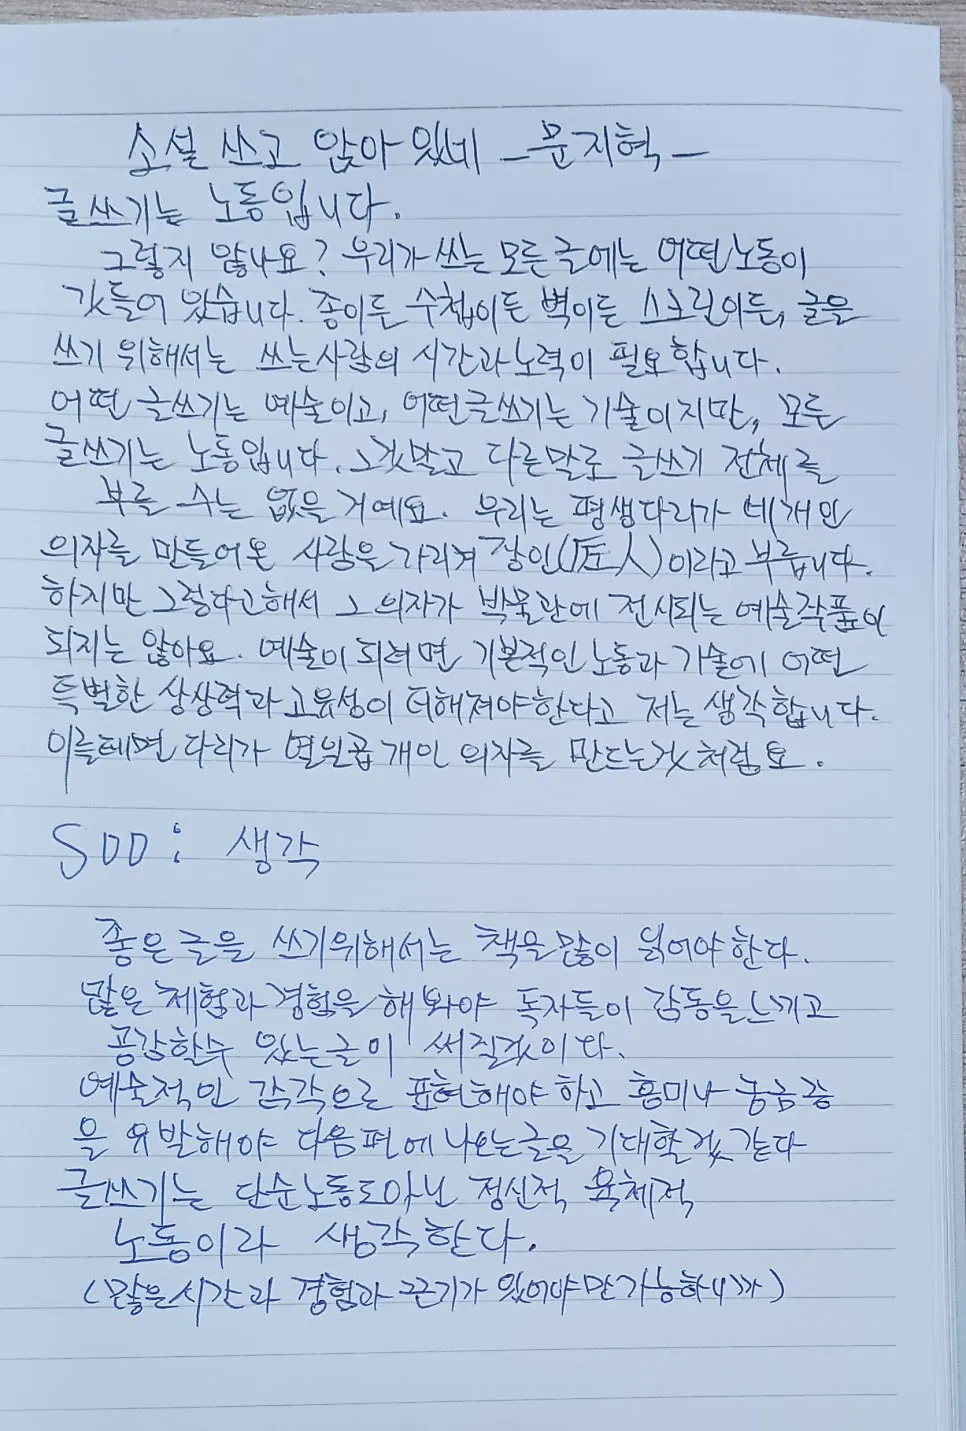 소설 쓰고 앉아 있네 - 문지혁 -
글쓰기는 노동입니다.
그렇지 않나요? 우리가 쓰는 모든 글에는 어떤 노동이
깃들어 있습니다. 종이든 수첩이든 벽이든 스크린이든, 글을
쓰기 위해서는 쓰는 사람의 시간과 노력이 필요합니다.
어떤 글쓰기는 예술이고, 어떤 글쓰기는 기술이지만, 모든
글쓰기는 노동입니다. 그것말고 다른말로 글쓰기 전체를
부를 수는 없을 거예요. 우리는 평생 다리가 네 개인
의자를 만들어 온 사람을 가리켜 장인(匠人)이라고 부릅니다.
하지만 그렇다고해서 그 의자가 박물관에 전시되는 예술작품이
되지는 않아요. 예술이 되려면 기본적인 노동과 기술에 어떤
특별한 상상력과 고유성이 더해져야한다고 저는 생각합니다.
이를테면 다리가 열일곱 개인 의자를 만드는것처럼요.
SOO : 생각
좋은 글을 쓰기위해서는 책을 많이 읽어야 한다.
많은 체험과 경험을 해 봐야 독자들이 감동을 느끼고
공감할수 있는 글이 써질것이다.
예술적인 감각으로 표현해야 하고 흥미나 궁금증
을 유발해야 다음편에 나오는 글을 기대할것 같다
글쓰기는 단순노동도아닌 정신적 육체적
노동이라 생각한다.
(많은 시간과 경험과 끈기가 있어야만 가능하니까)